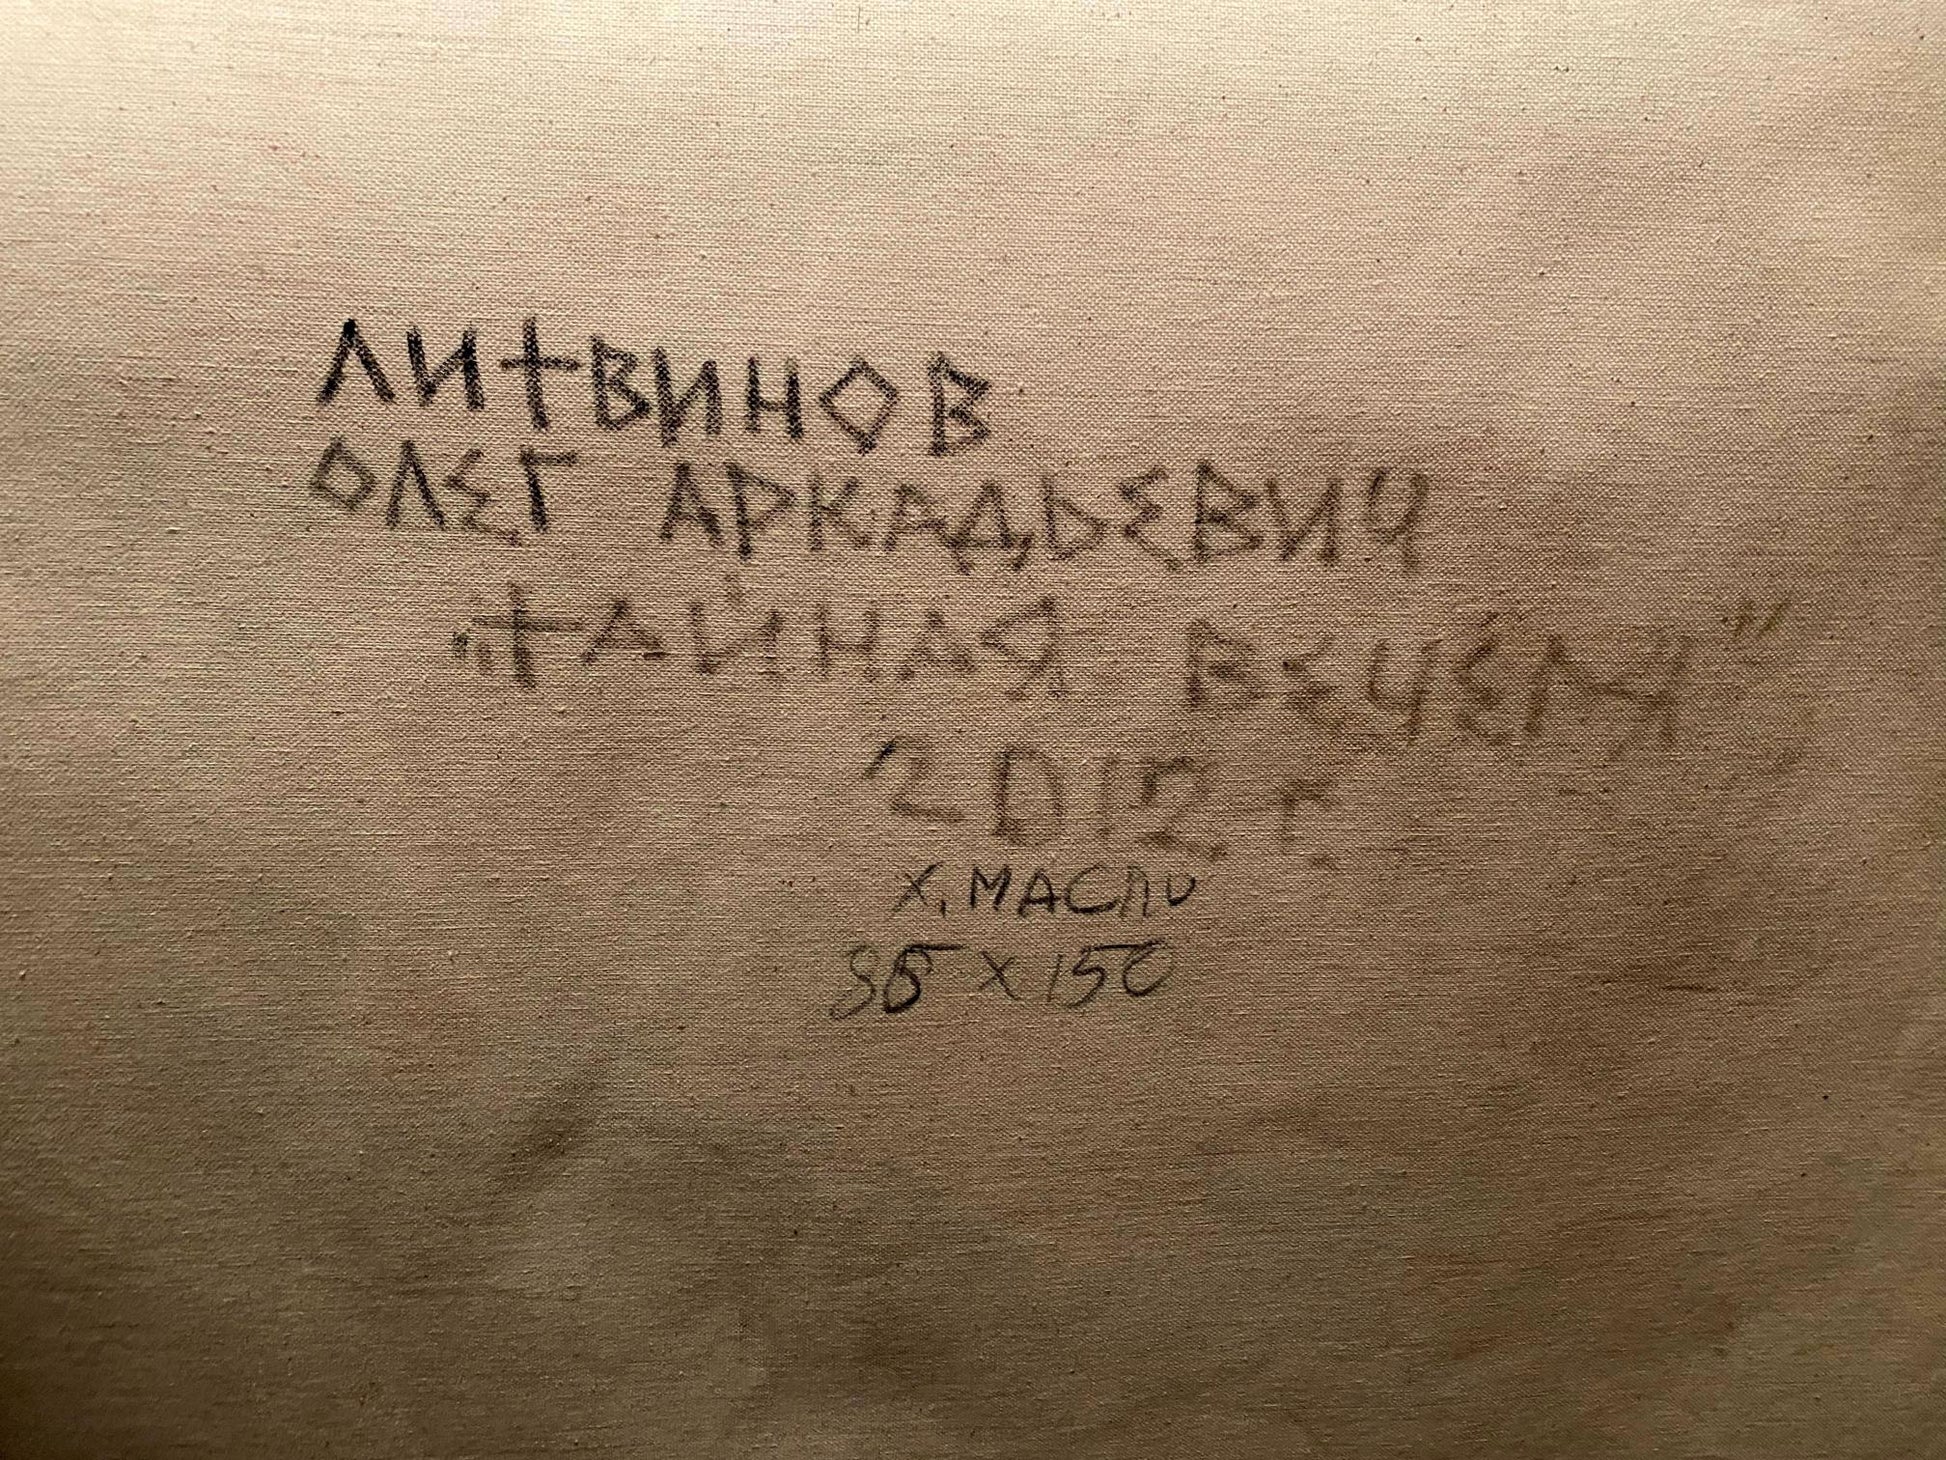 ЛИТВИНОВ
ОЛЕГ АРКАДЬЕВИЧ
„ТАЙНАЯ ВЕЧЕРЯ”
2012 г.
Х. МАСЛО
85 х 150